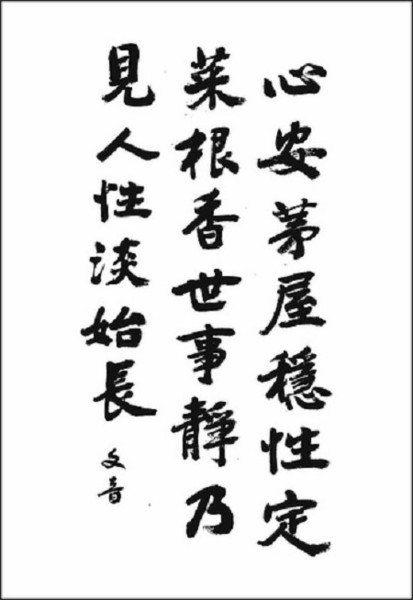 心安茅屋穩性定
菜根香世事靜乃
見人性淡始長
文音